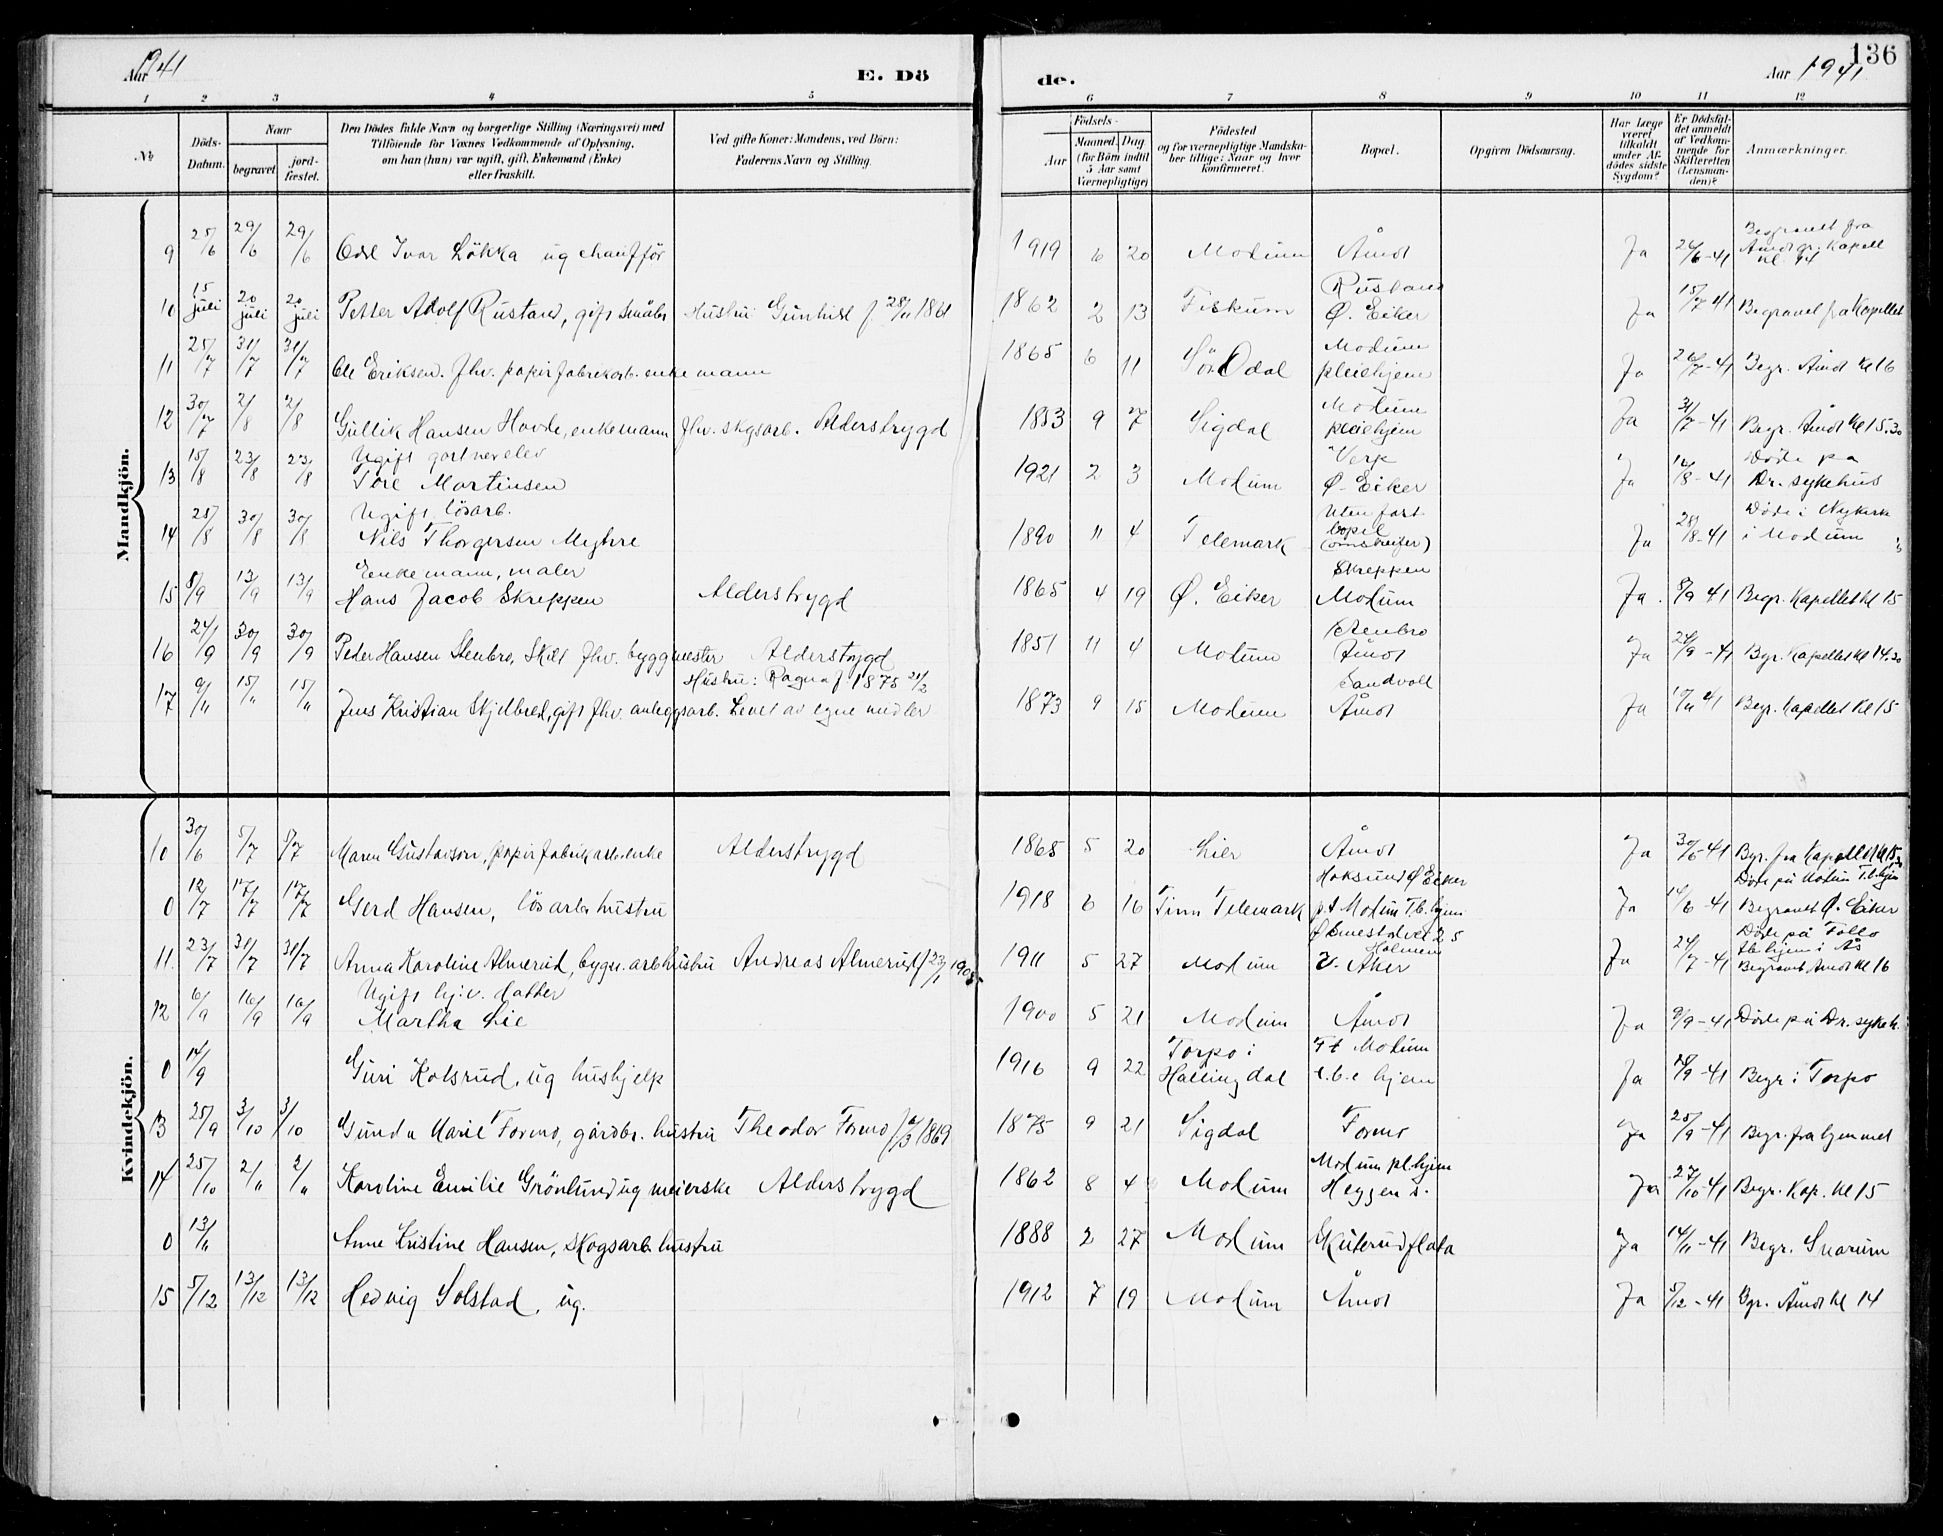 Aar 1941
E. Dö
de.
Aar 1941
136
1 2 3 4 5 6 7 8 9 10 11 12
No
Döds-Datum.
Naar
begravet
jord-fæstet.
Den Dödes fulde Navn og borgerlige Stilling (Næringsvei) med
Tilföiende for Voxnes Vedkommende af Oplysning,
om han (hun) var ugift, gift, Enkemand (Enke)
eller fraskilt.
Ved gifte Koner: Mandens, ved Börn:
Faderens Navn og Stilling.
Födsels-
Aar
Maaned. Dag
(for Börn indtil
5 Aar samt
Værnepligtige)
Födested
og for værnepligtige Mandska-
ber tillige: Naar og hvor
konfirmeret.
Bopæl.
Opgiven Dödsaarsag.
Har Læge
været
tilkaldt
under Af-
dödes sidste
Sygdom?
Er Dödsfal-
det anmeldt
af Vedkom-
mende for
Skifteretten
(Lensman-
den)?
Anmærkninger.
Mandkjön.
9 25/6 29/6 29/6 Odd Ivar Lökka ug chaufför 1919 6 20 Modum Åmot Ja 26/6-41 Begravet fra Åmot gr. Kapell kl. 14
10 15 juli 20 juli 20 juli Petter Adolf Rustand, gift småbr Hustru: Gunhild f. 28/11 1861 1862 2 13 Fiskum Rustand Ö. Eiker Ja 15/7 41 Begravet fra Kapellet
11 25/7 31/7 31/7 Ole Eriksen. fhv. papirfabrikarb. enkemann 1865 6 11 Sör Odal Modum pleiehjem Ja 26/7-41 Begr. Åmot kl 16
12 30/7 2/8 2/8 Gullik Hansen Hovde, enkemann fhv. skgsarb. Alderstrygd 1853 9 7 Sigdal Modum pleiehjem Ja 31/7-41 Begr. Åmot kl 15.30
13 15/8 23/8 23/8 Ugift gartnerelev Tore Martinsen 1921 2 3 Modum Verp Ö. Eiker Ja 16/8-41 Döde på Dr. sykehus
14 25/8 30/8 30/8 Ugift lösarb. Nils Thorgersen Myhre 1890 11 4 Telemark Uten fast bopel (omstreifer) Ja 28/8-41 Döde i Nykirk i Modum
15 8/9 13/9 13/9 Enkemann, maler Hans Jacob Skreppen Alderstrygd 1865 4 19 Ö. Eiker Skreppen Modum Ja. 8/9 41 Begr. Kapellet kl 15
16 24/9 30/9 30/9 Peder Hansen Stenbro, Skilt fhv. byggmester Alderstrygd 1851 11 4 Modum Stenbro Åmot Ja 24/9-41 Begr. Kapellet kl 14.30
17 9/11 15/11 15/11 Jens Kristian Skjelbred, gift fhv. anleggsarb. Hustru: Ragna f. 1875 21/2 Levet av egne midler 1873 9 15 Modum Sandvoll Åmot Ja 10/11 41 Begr. Kapellet kl 15
Kvindekjön.
10 30/6 5/7 5/7 Maren Gustavson, papirfabrikarb. enke Alderstrygd 1865 5 20 Lier Åmot Ja 30/6-41 Begr. fra Kapellet kl 15.30
0 12/7 17/7 17/7 Gerd Hansen, lösarb. hustru 1918 6 16 Tinn Telemark Hoksund Ö Eiker p.t Modum T.b. hjem Ja 14/6-41 Döde på Modum T.b. hjem Begravet Ö. Eiker
11. 23/7 31/7 31/7 Anna Karoline Almerud, bygn. arb hustru Andreas Almerud f 23/1 1905 1911 5 27 Modum Holmen V. Aker Ja 24/7-41 Döde på Follo tb. hjem i Ås Begravet Åmot kl 16
12 6/9 16/9 16/9 Ugift hj.v. datter Martha Lie 1900 5 21 Modum Åmot Ja 9/9-41 Döde på Dr. sykeh.
0 14/9 Guri Kolsrud, ug hushjelp 1916 9 22 Torpo i Hallingdal F.t Modum t.b.c hjem Ja 18/9-41 Begr i Torpo
13 25/9 3/10 3/10 Gunda Marie Formo, gårdbr. hustru Theodor Formo 1869 1875 9 21 Sigdal Formo Ja 25/9-41 Begr. fra hjemmet
14 25/10 2/11 2/11 Karoline Emilie Grönlund ug meierske Alderstrygd 1862 8 4 Modum Modum pl.hjem Heggen s. Ja 27/10-41 Begr. Kap. kl 15
0 13/11 Anne Kristine Hansen, skogsarb hustru 1888 2 27 Modum Skuterudflata Ja 14/11-41 Begr. Snarum
15 5/12 13/12 13/12 Hedvig Solstad, ug. 1912 7 19 Modum Åmot Ja 5/12-41 Bgr. Åmot kl 14